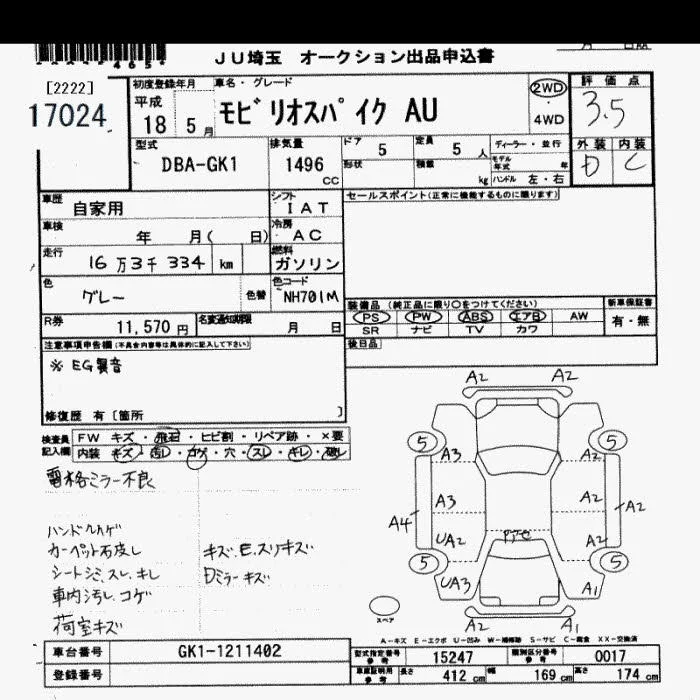 JU埼玉 オークション出品申込書
[2222]
17024
初度登録年月
平成
18 5月
車名・グレード
モビリオスパイク AU
2WD
・
4WD
評価点
3.5
型式
DBA-GK1
排気量
1496
CC
ドア
5
定員
5 人
ディーラー・並行
モデル年式 年
形状
積載
kg
ハンドル 左・右
外装 内装
D C
車歴
自家用
シフト
IAT
セールスポイント(正常に機能するものに限ります)
車検
年 月( 日)
冷房
AC
走行
16万3千334 km
燃料
ガソリン
色
グレー
色替
色コード
NH701M
装備品(純正品に限り○をつけてください)
新車保証書
PS PW ABS エアB AW
有・無
SR ナビ TV カワ
R券
11,570円
名変通知期限
月 日
後日品
注意事項申告欄(不具合内容等は具体的に記入して下さい)
※ EG異音
修復歴 有[箇所 ]
検査員記入欄
FW キズ・飛石・ヒビ割・リペア跡・×要
内装 キズ・汚し・コゲ・穴・スレ・キレ・破レ
電格ミラー不良
カーペット
シートシミ、スレ、キレ
車内汚し、コゲ
荷室キズ
Dミラーキズ
A2 A2
5 5
A3 A2
A3 A2 A2
A4
UA2 A2
5 5
UA3 A1
A2 A1
スペア
A-キズ E-エクボ U-凹み W-補修跡 S-サビ C-腐食 XX-交換済
車台番号 GK1-1211402
登録番号
型式指定番号 参考 15247
類別区分番号 参考 0017
車庫証明用 参考 長さ 412 cm 幅 169 cm 高さ 174 cm